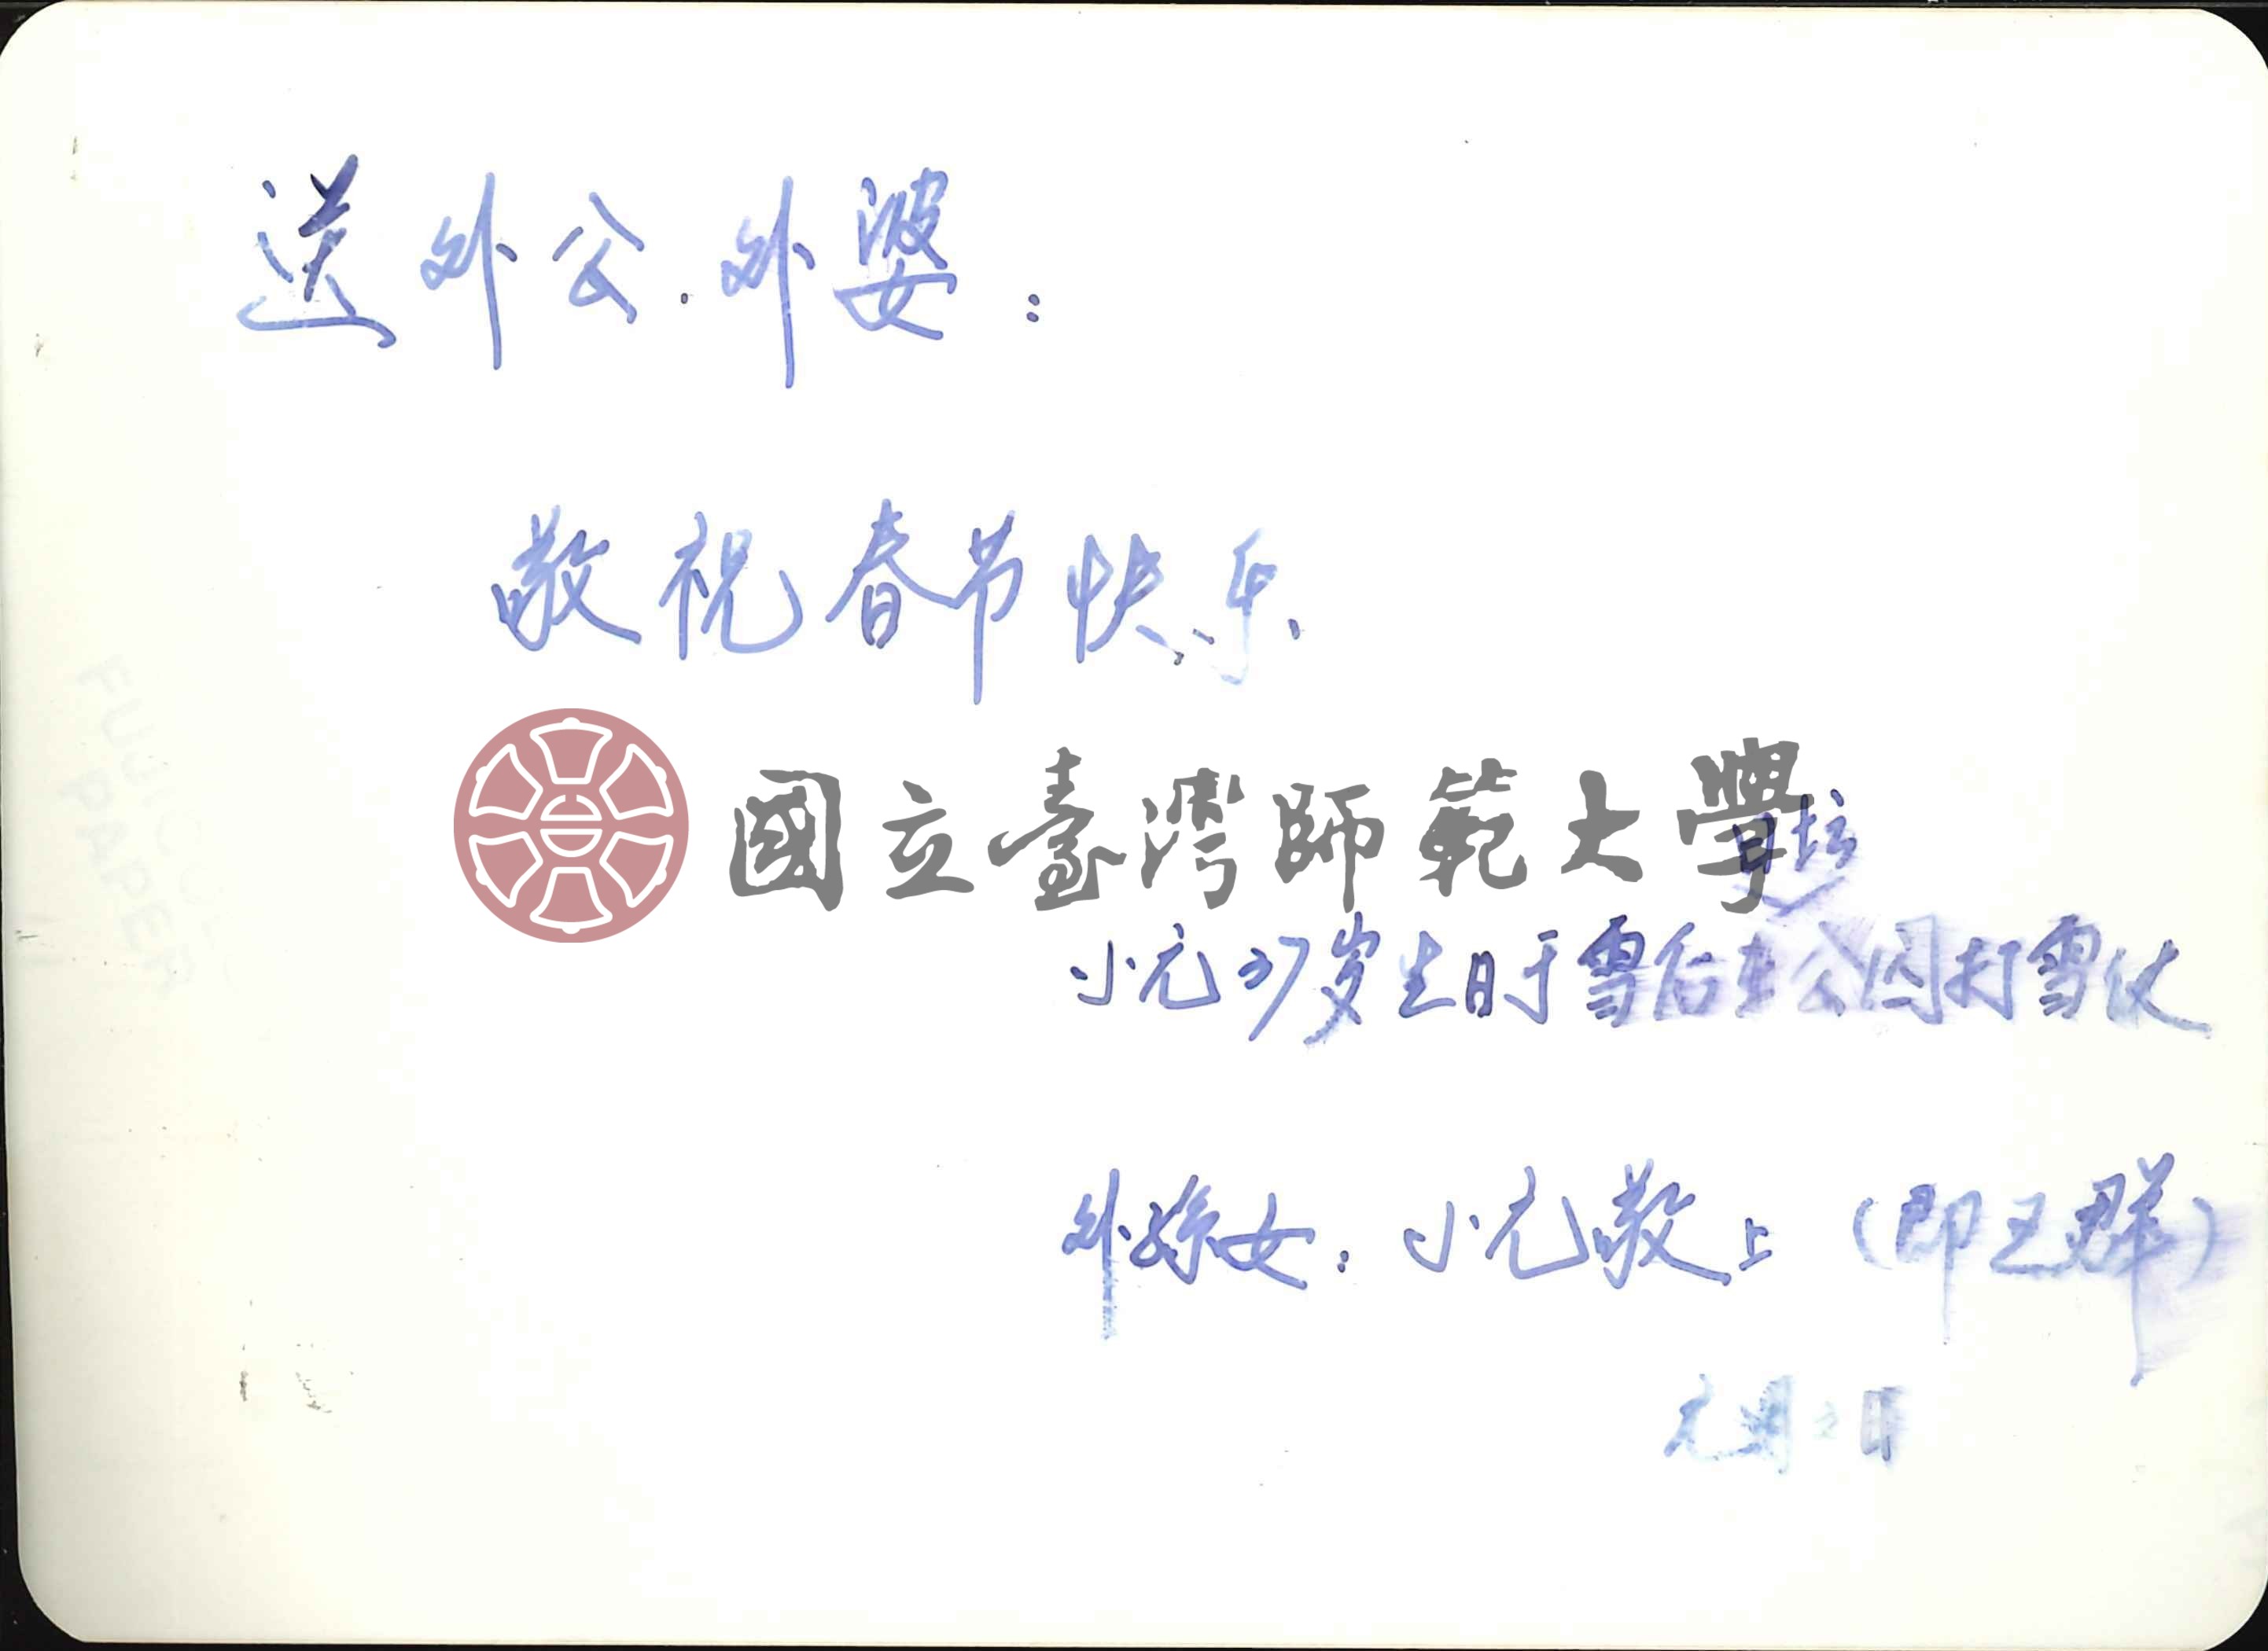 送外公.外婆：
敬祝春节快乐
國立臺灣師範大學
日坛
小元27岁生日于雪后在公园打雪仗
外孫女：小元敬上（即王群）
元月 日
FUJICOLOR
PAPER